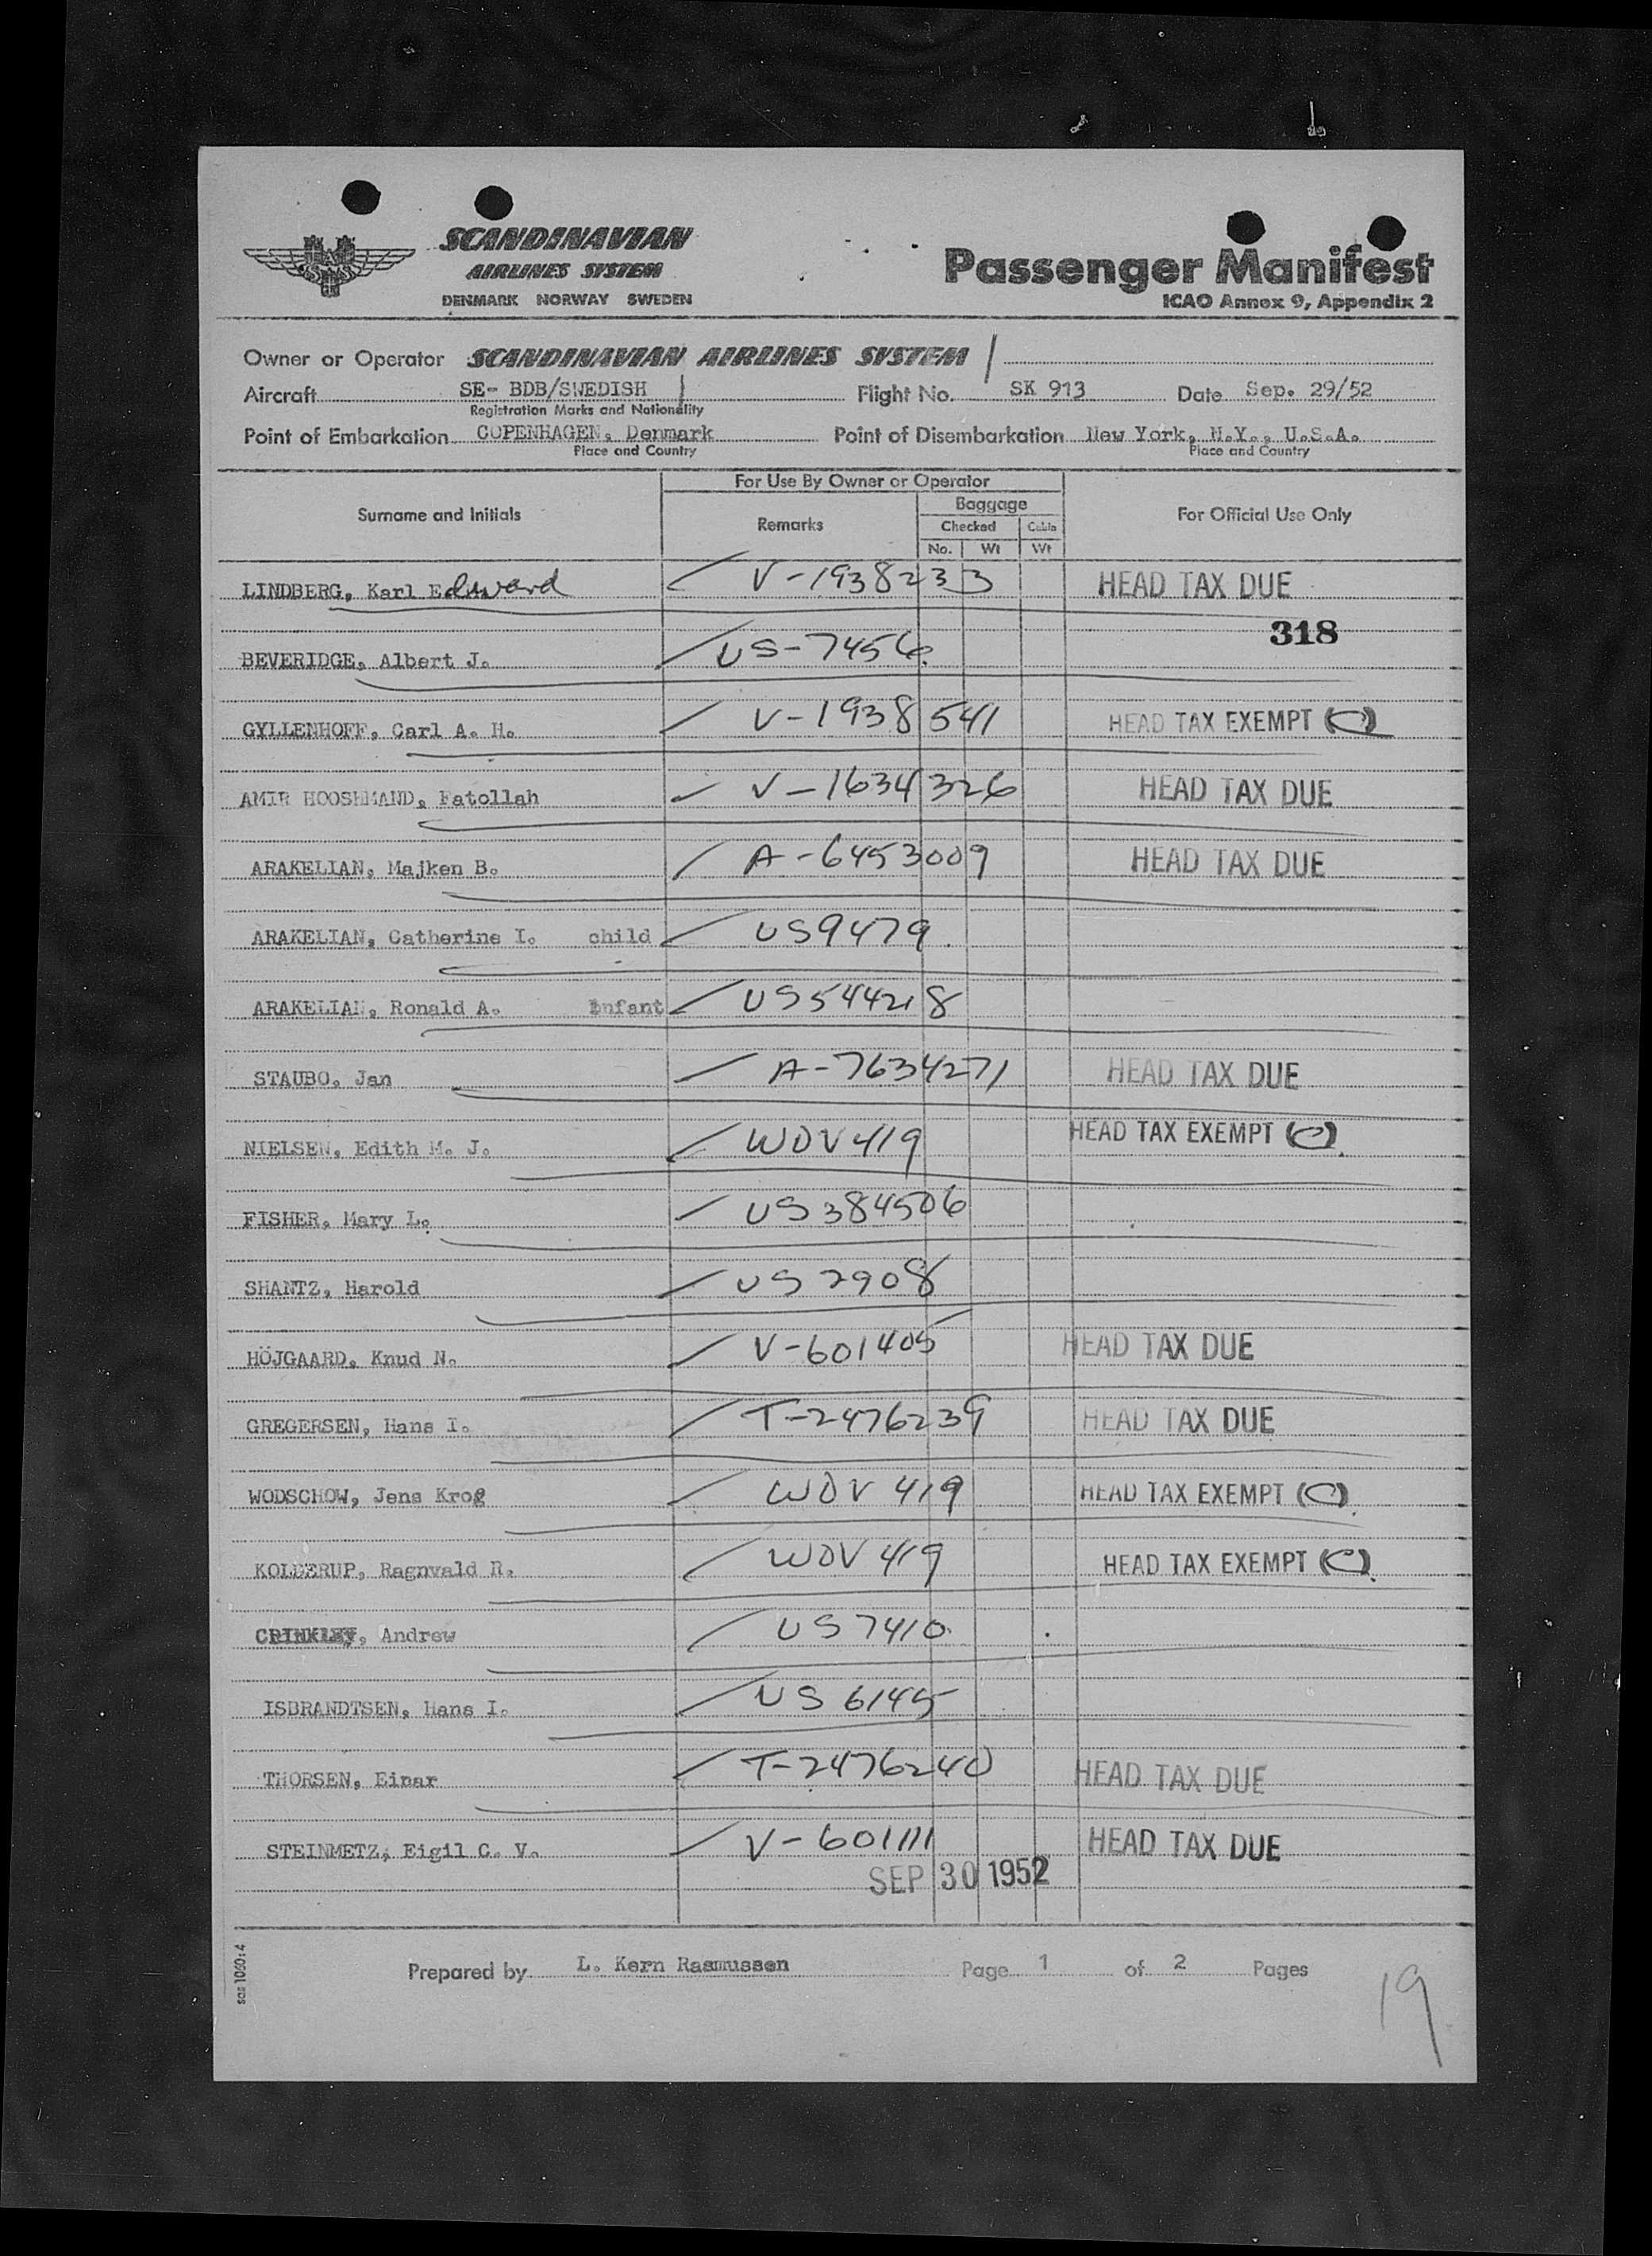 SCANDINAVIAN
AIRLINES SYSTEM
DENMARK NORWAY SWEDEN
Passenger Manifest
ICAO Annex 9, Appendix 2
Owner or Operator SCANDINAVIAN AIRLINES SYSTEM
Aircraft SE- BDB/SWEDISH Flight No. SK 913 Date Sep. 29/52
Registration Marks and Nationality
Point of Embarkation COPENHAGEN, Denmark Point of Disembarkation New York, N.Y., U.S.A.
Place and Country Place and Country
For Use By Owner or Operator
Surname and Initials Remarks Baggage For Official Use Only
Checked Cabin
No. Wt Wt
LINDBERG, Karl Edward V-1938233 HEAD TAX DUE
318
BEVERIDGE, Albert J. US-7456
GYLLENHOFF, Carl A. H. V-1938541 HEAD TAX EXEMPT (C)
AMIR HOOSHMAND, Fatollah V-1634326 HEAD TAX DUE
ARAKELIAN, Majken B. A-6453009 HEAD TAX DUE
ARAKELIAN, Catherine I. child US9479
ARAKELIAN, Ronald A. infant US544218
STAUBO, Jan A-7634271 HEAD TAX DUE
NIELSEN, Edith M. J. WOV419 HEAD TAX EXEMPT (C)
FISHER, Mary L. US384506
SHANTZ, Harold US2908
HÖJGAARD, Knud N. V-601405 HEAD TAX DUE
GREGERSEN, Hans I. T-2476239 HEAD TAX DUE
WODSCHOW, Jens Krog WOV 419 HEAD TAX EXEMPT (C)
KOLDERUP, Ragnvald R. WOV 419 HEAD TAX EXEMPT (C)
CRINKLEY, Andrew US7410
ISBRANDTSEN, Hans I. US 6145
THORSEN, Einar T-2476240 HEAD TAX DUE
STEINMETZ, Eigil C. V. V-601111 HEAD TAX DUE
SEP 30 1952
sas 1060:4
Prepared by L. Kern Rasmussen Page 1 of 2 Pages
19